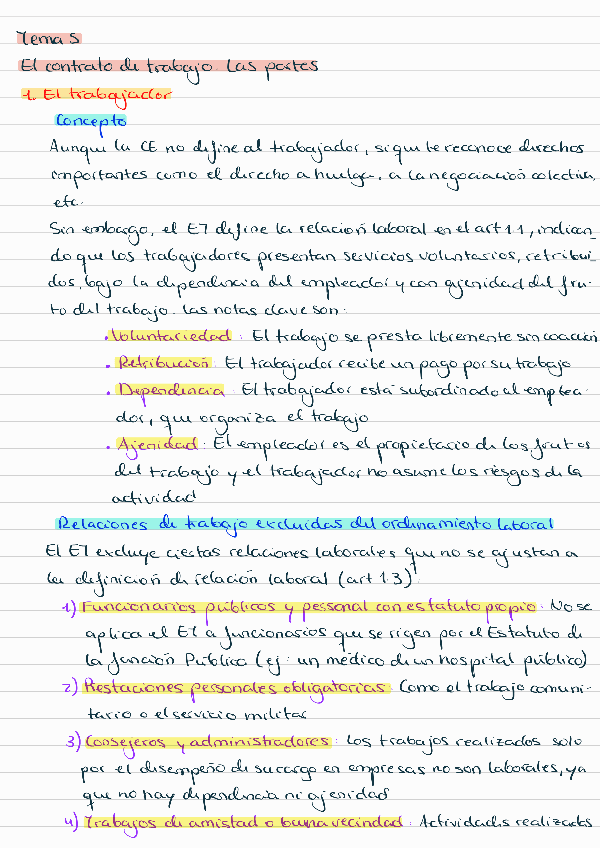 Tema 5
El contrato de trabajo. Las partes
1. El trabajador
Concepto
Aunque la CE no define al trabajador, si que le reconoce derechos
importantes como el derecho a huelga, a la negociación colectiva,
etc.
Sin embargo, el ET define la relación laboral en el art 1.1, indican_
do que los trabajadores presentan servicios voluntarios, retribui_
dos, bajo la dependencia del empleador y con ajenidad del fru-
to del trabajo. Las notas clave son:
• Voluntariedad: El trabajo se presta libremente sin coacción
• Retribución: El trabajador recibe un pago por su trabajo
• Dependencia: El trabajador está subordinado al emplea-
dor, que organiza el trabajo
• Ajenidad: El empleador es el propietario de los frutos
del trabajo y el trabajador no asume los riesgos de la
actividad
Relaciones de trabajo excluidas del ordenamiento laboral
El ET excluye ciertas relaciones laborales que no se ajustan a
la definición de relación laboral (art 1.3):
1) Funcionarios públicos y personal con estatuto propio: No se
aplica el ET a funcionarios que se rigen por el Estatuto de
la función Pública (ej: un médico de un hospital público)
2) Prestaciones personales obligatorias: Como el trabajo comuni-
tario o el servicio militar
3) Consejeros y administradores: Los trabajos realizados solo
por el desempeño de su cargo en empresas no son laborales, ya
que no hay dependencia ni ajenidad
4) Trabajos de amistad o buena vecindad: Actividades realizadas